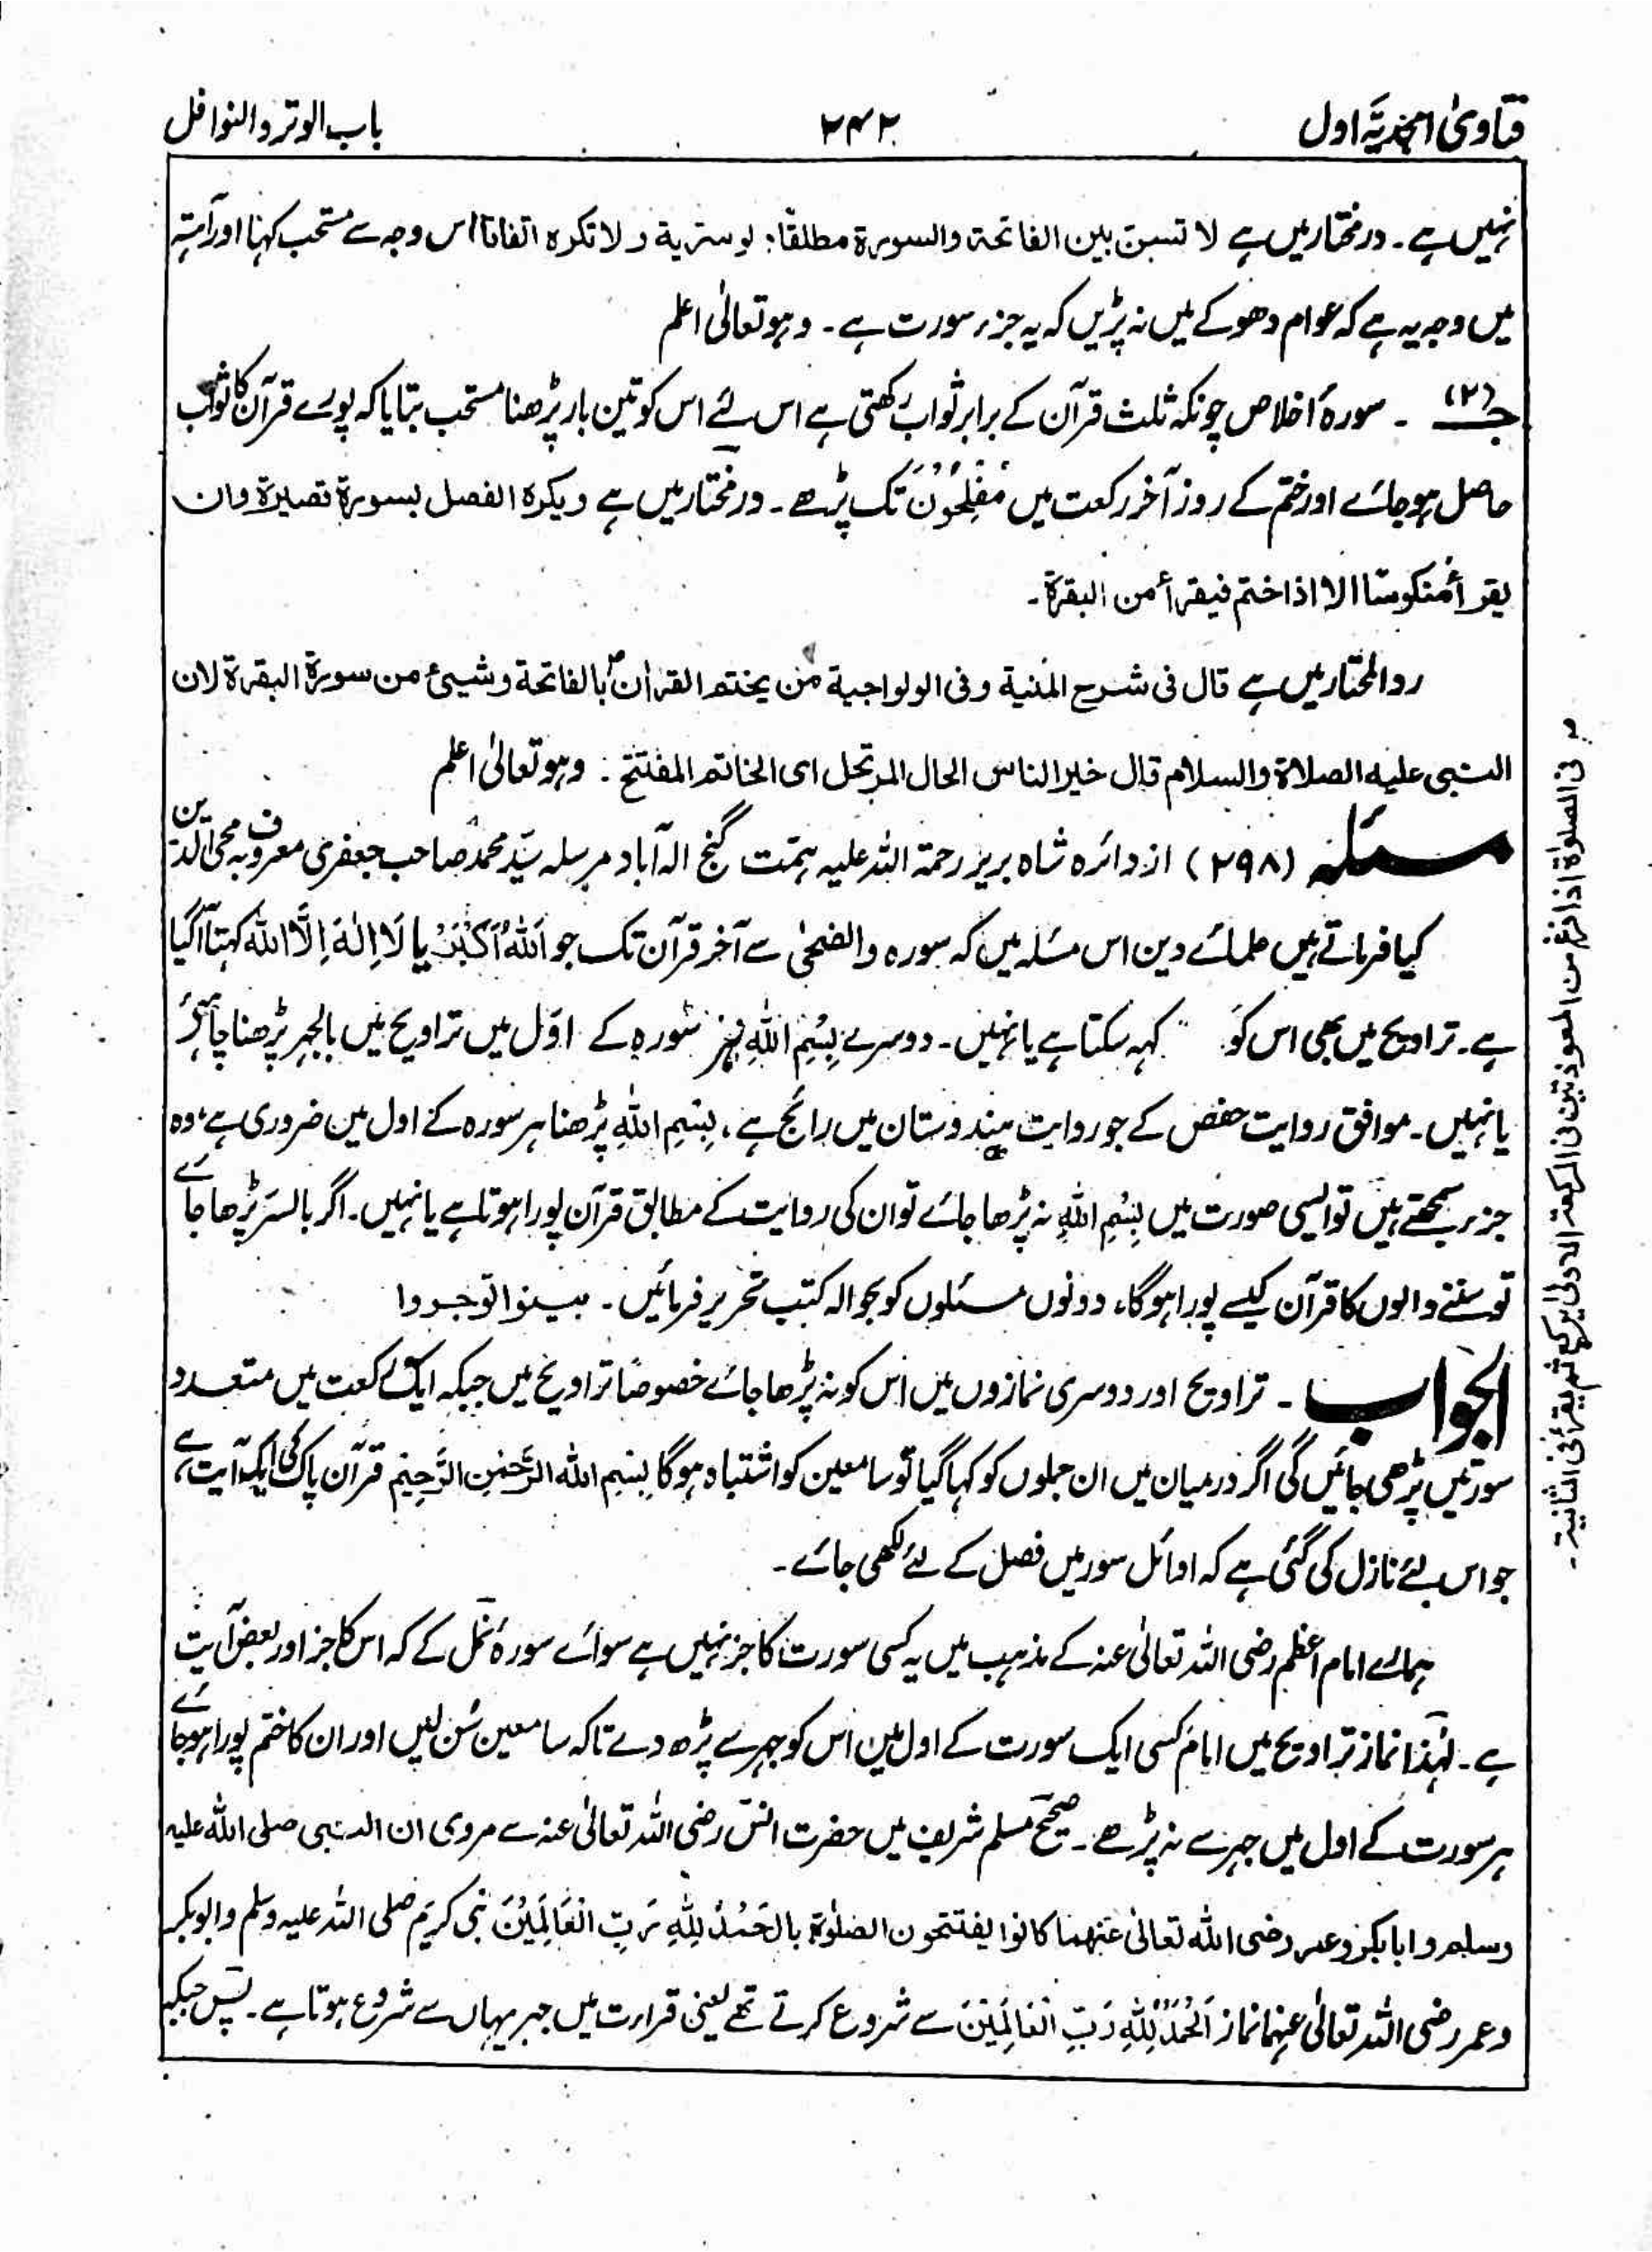 فتاویٰ امجدیہ اول
۲۴۲
باب الوتر والنوافل
نہیں ہے۔ درمختار میں ہے لا تسن بین الفاتحۃ والسورۃ مطلقًا؛ لو سریۃ ولا تکرہ اتفاقا اس وجہ سے مستحب کہنا اور آہستہ
میں وجہ یہ ہے کہ عوام دھوکے میں نہ پڑیں کہ یہ جزء سورت ہے۔ وہو تعالیٰ اعلم
جـ (۲) ۔ سورۂ اخلاص چونکہ ثلث قرآن کے برابر ثواب رکھتی ہے اس لئے اس کو تین بار پڑھنا مستحب بتایا کہ پورے قرآن کا ثواب
حاصل ہو جائے اور ختم کے روز آخر رکعت میں مُفْلِحُوْنَ تک پڑھے۔ درمختار میں ہے ویکرہ الفصل بسورۃ قصیرۃ وان
یقرأ منکوسًا الا اذا ختم فیقرأ من البقرۃ۔
ردالمحتار میں ہے قال فی شرح المنیۃ وفی الولواجیۃ من یختم القراٰن بالفاتحۃ وشیئ من سورۃ البقرۃ لان
النبی علیہ الصلاۃ والسلام قال خیر الناس الحال المرتحل ای الخاتم المفتتح ۔ وہو تعالیٰ اعلم
مسئلہ (۲۹۸) از دائرہ شاہ بریر رحمۃ اللہ علیہ ہمت گنج الہ آباد مرسلہ سیّد محمد صاحب جعفری معروف بہ محی الدین
کیا فرماتے ہیں علمائے دین اس مسئلہ میں کہ سورہ والضحیٰ سے آخر قرآن تک جو اَللّٰہُ اَکْبَرُ یا لَا اِلٰہَ اِلَّا اللہ کہنا آگیا
ہے۔ تراویح میں بھی اس کو کہہ سکتا ہے یا نہیں۔ دوسرے بِسْمِ اللّٰہِ ہر سورہ کے اوّل میں تراویح میں بالجہر پڑھنا چاہئے
یا نہیں۔ موافق روایت حفص کے جو روایت ہندوستان میں رائج ہے، بِسْمِ اللّٰہِ پڑھنا ہر سورہ کے اول میں ضروری ہے، وہ
جزء سمجھتے ہیں تو ایسی صورت میں بِسْمِ اللّٰہِ نہ پڑھا جائے تو ان کی روایت کے مطابق قرآن پورا ہوتا ہے یا نہیں۔ اگر بالسر پڑھا جائے
تو سننے والوں کا قرآن کیسے پورا ہوگا، دونوں مسئلوں کو بحوالہ کتب تحریر فرمائیں۔ بینوا توجروا
الجواب ۔ تراویح اور دوسری نمازوں میں اس کو نہ پڑھا جائے خصوصًا تراویح میں جبکہ ایک رکعت میں متعدد
سورتیں پڑھی جائیں گی اگر درمیان میں ان جملوں کو کہا گیا تو سامعین کو اشتباہ ہوگا بِسْمِ اللّٰہِ الرَّحْمٰنِ الرَّحِیْمِ قرآن پاک کی ایک آیت ہے
جو اس لئے نازل کی گئی ہے کہ اوائل سور میں فصل کے لئے لکھی جائے۔
ہمارے امام اعظم رضی اللہ تعالیٰ عنہ کے مذہب میں یہ کسی سورت کا جز نہیں ہے سوائے سورۂ نمل کے کہ اس کا جز اور بعض آیت
ہے۔ لہٰذا نماز تراویح میں امام کسی ایک سورت کے اول میں اس کو جہر سے پڑھ دے تاکہ سامعین سُن لیں اور ان کا ختم پورا ہو جائے
ہر سورت کے اول میں جہر سے نہ پڑھے۔ صحیح مسلم شریف میں حضرت انس رضی اللہ تعالیٰ عنہ سے مروی ان النبی صلی اللہ علیہ
وسلم وابابکر وعمر رضی اللہ تعالیٰ عنہما کانوا یفتتحون الصلوٰۃ بالحَمْدُ لِلّٰہِ رَبِّ الْعَالَمِیْنَ نبی کریم صلی اللہ علیہ وسلم وابوبکر
وعمر رضی اللہ تعالیٰ عنہما نماز اَلْحَمْدُ لِلّٰہِ رَبِّ الْعَالَمِیْنَ سے شروع کرتے تھے یعنی قراءت میں جہر یہاں سے شروع ہوتا ہے۔ پس جبکہ
فی الصلوٰۃ اذا فرغ من المعوذتین فی الرکعۃ الاولیٰ یرکع ثم یقرأ فی الثانیۃ۔